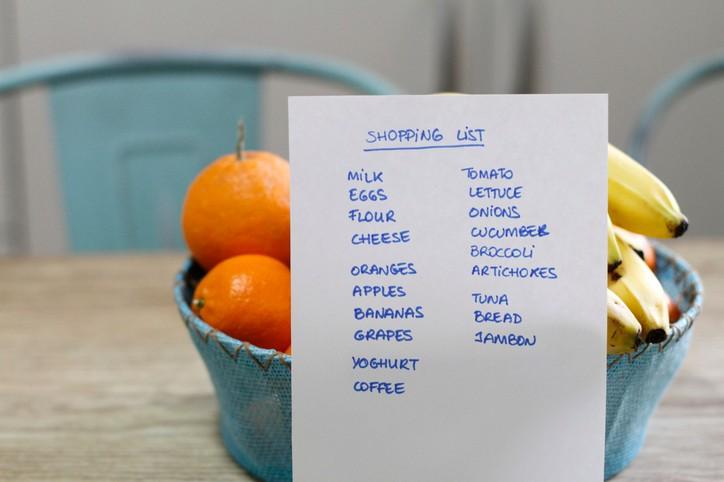 SHOPPING LIST
MILK
EGGS
FLOUR
CHEESE
ORANGES
APPLES
BANANAS
GRAPES
YOGHURT
COFFEE
TOMATO
LETTUCE
ONIONS
CUCUMBER
BROCCOLI
ARTICHOKES
TUNA
BREAD
JAMBON